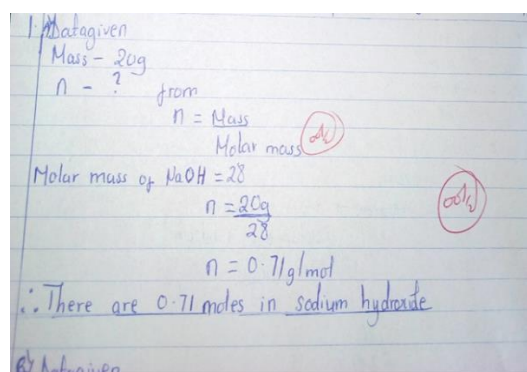 Datagiven
Mass - 20g
n - ?
from
n = Mass
Molar mass
Molar mass of NaOH = 28
n = 20g
28
n = 0.71g/mol
∴ There are 0.71 moles in sodium hydroxide
Datagiven